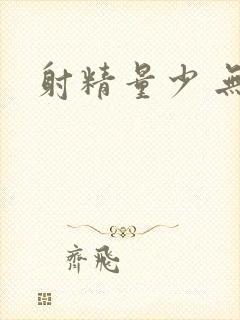 射精量少 無
齊飛